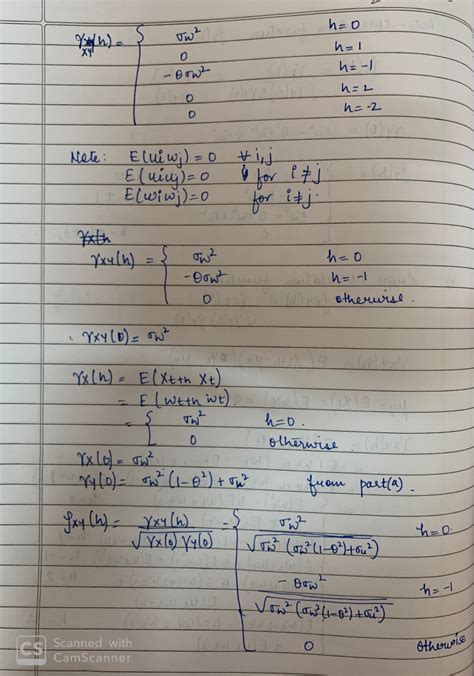 γxy(h) = { σw² h=0
0 h=1
-θσw² h=-1
0 h=2
0 h=-2
Note: E(uiwj)=0 ∀ i,j
E(uiuj)=0 for i≠j
E(wiwj)=0 for i≠j
γx(h
γxy(h) = { σw² h=0
-θσw² h=-1
0 otherwise.
∴ γxy(0) = σw²
γx(h) = E(Xt+h Xt)
= E(wt+h wt)
= { σw² h=0.
0 otherwise
γx(0) = σw²
γy(0) = σw²(1-θ²)+σu² from part(a).
ρxy(h) = γxy(h) / √γx(0) γy(0) = { σw² / √σw² (σw²(1-θ²)+σu²) h=0
-θσw² / √σw² (σw²(1-θ²)+σu²) h=-1
0 otherwise
CS Scanned with
CamScanner